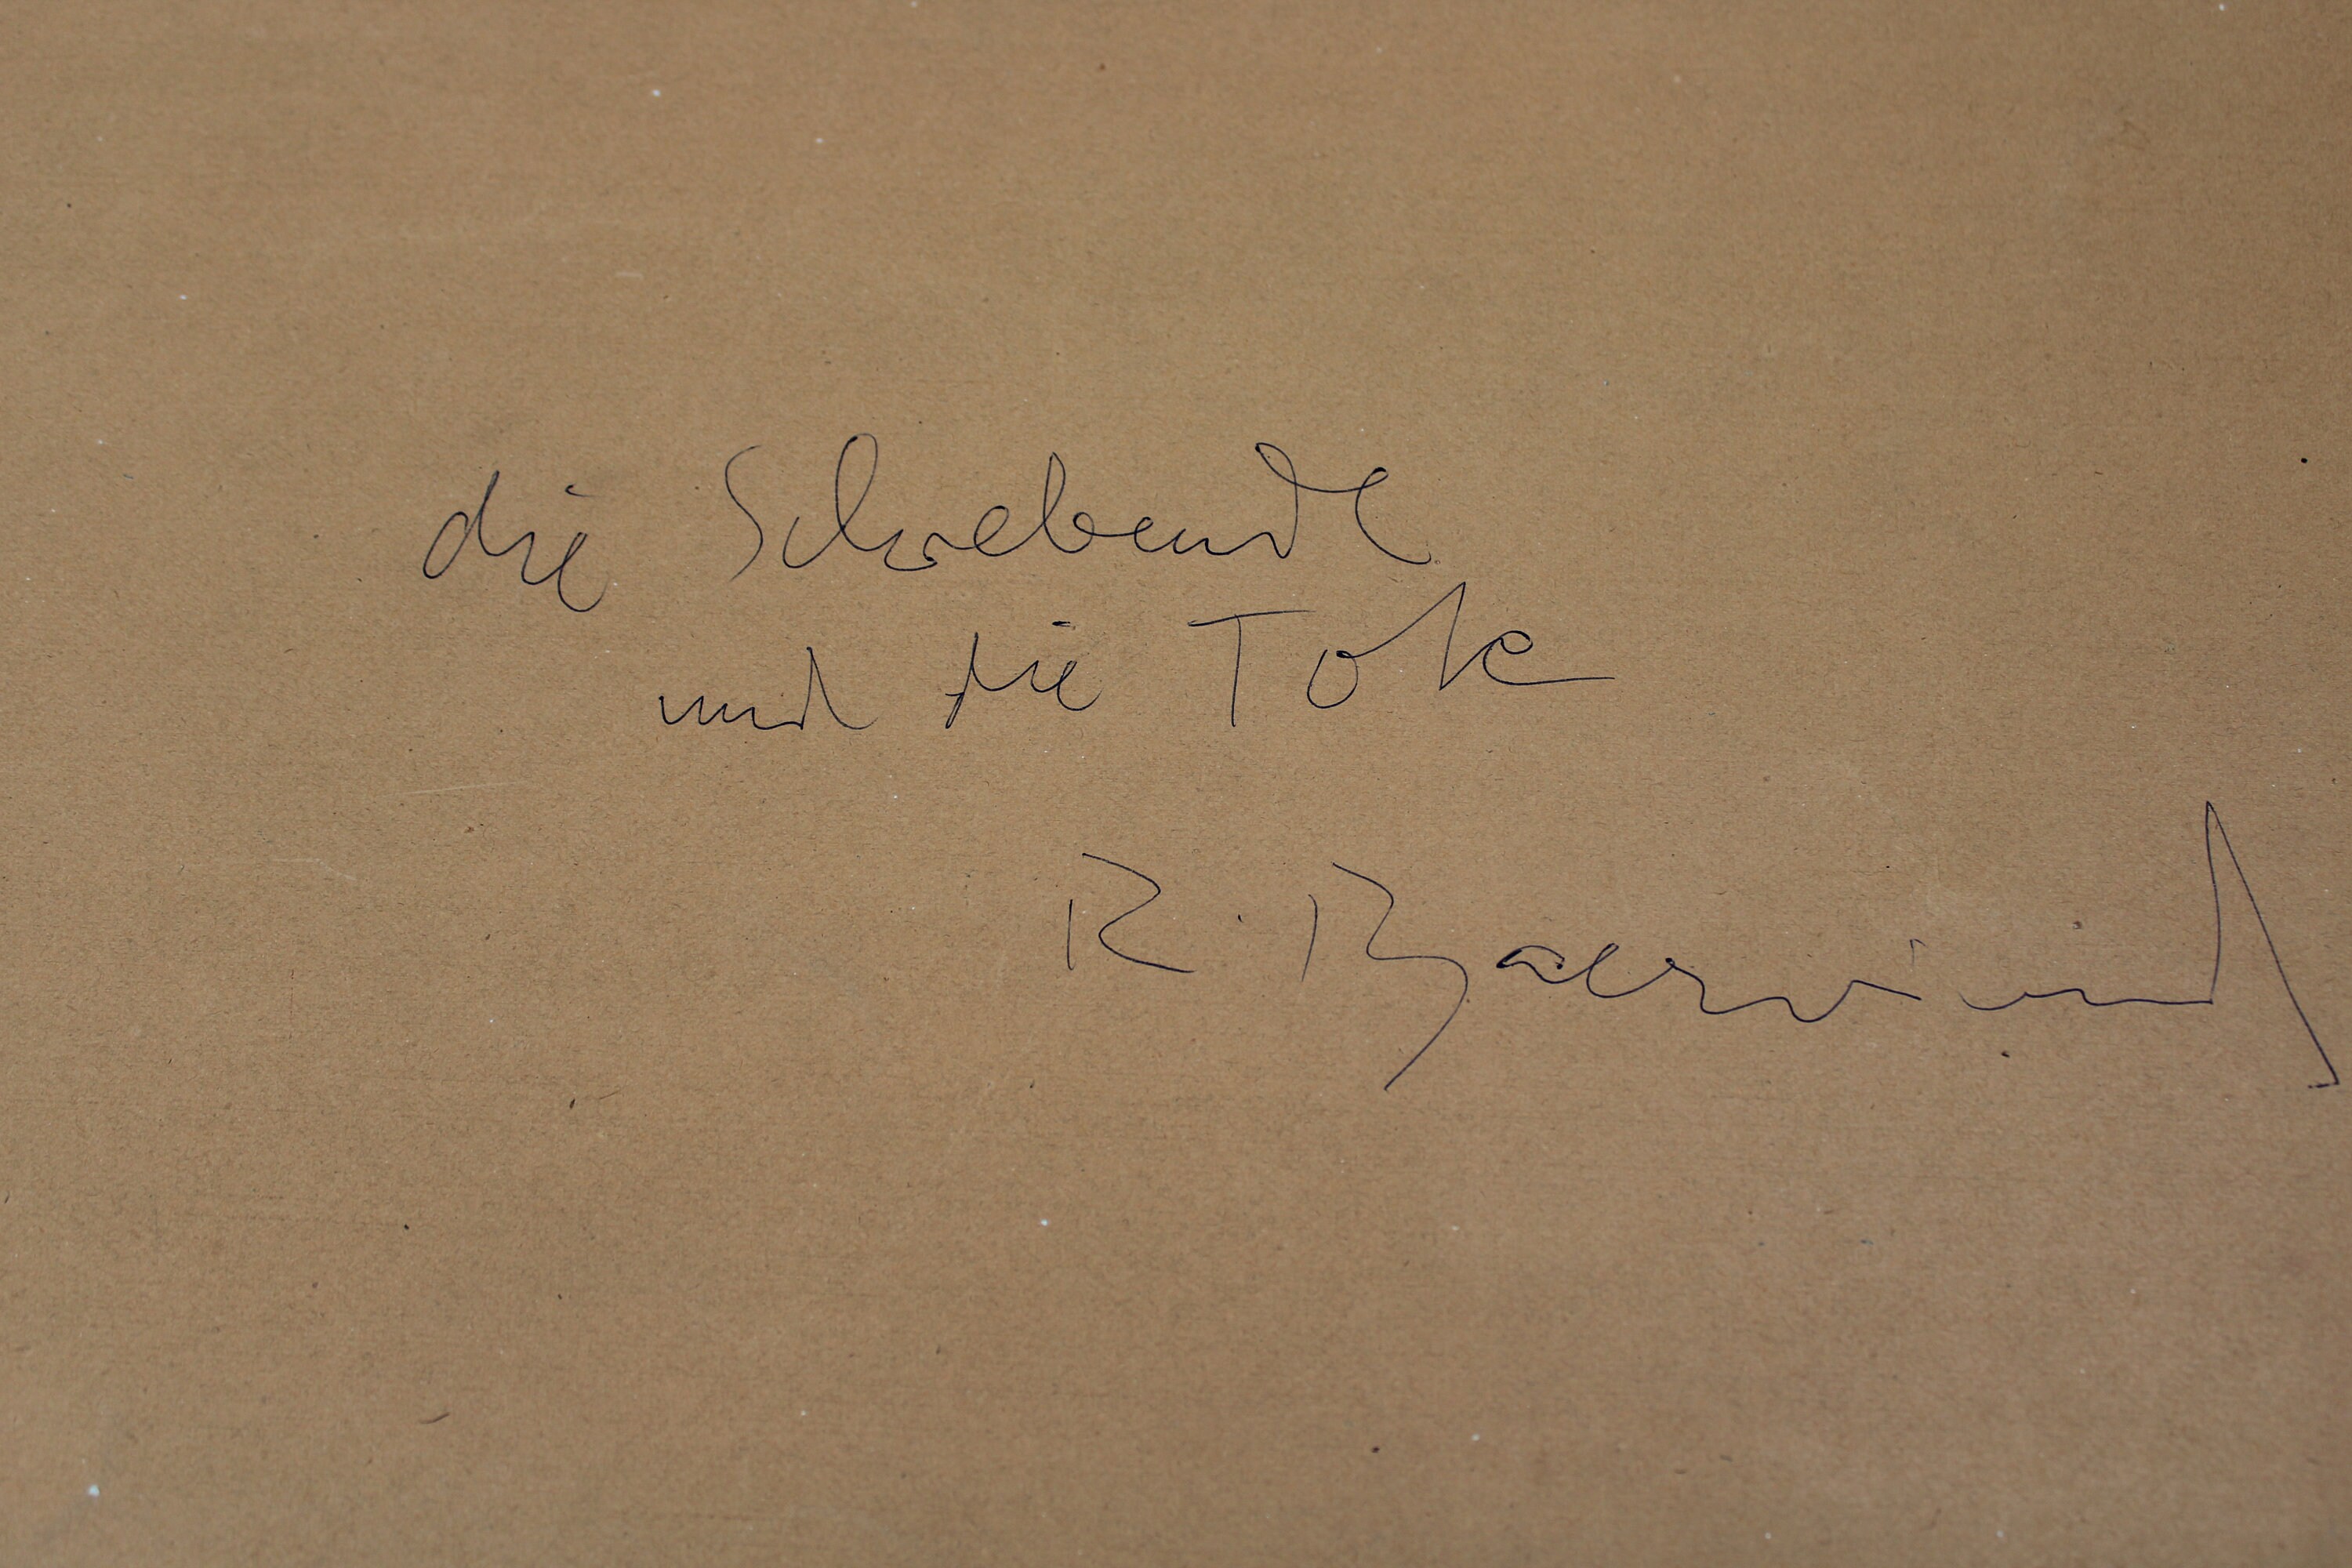 die Schwebende
und die Tote
R. Baerwind